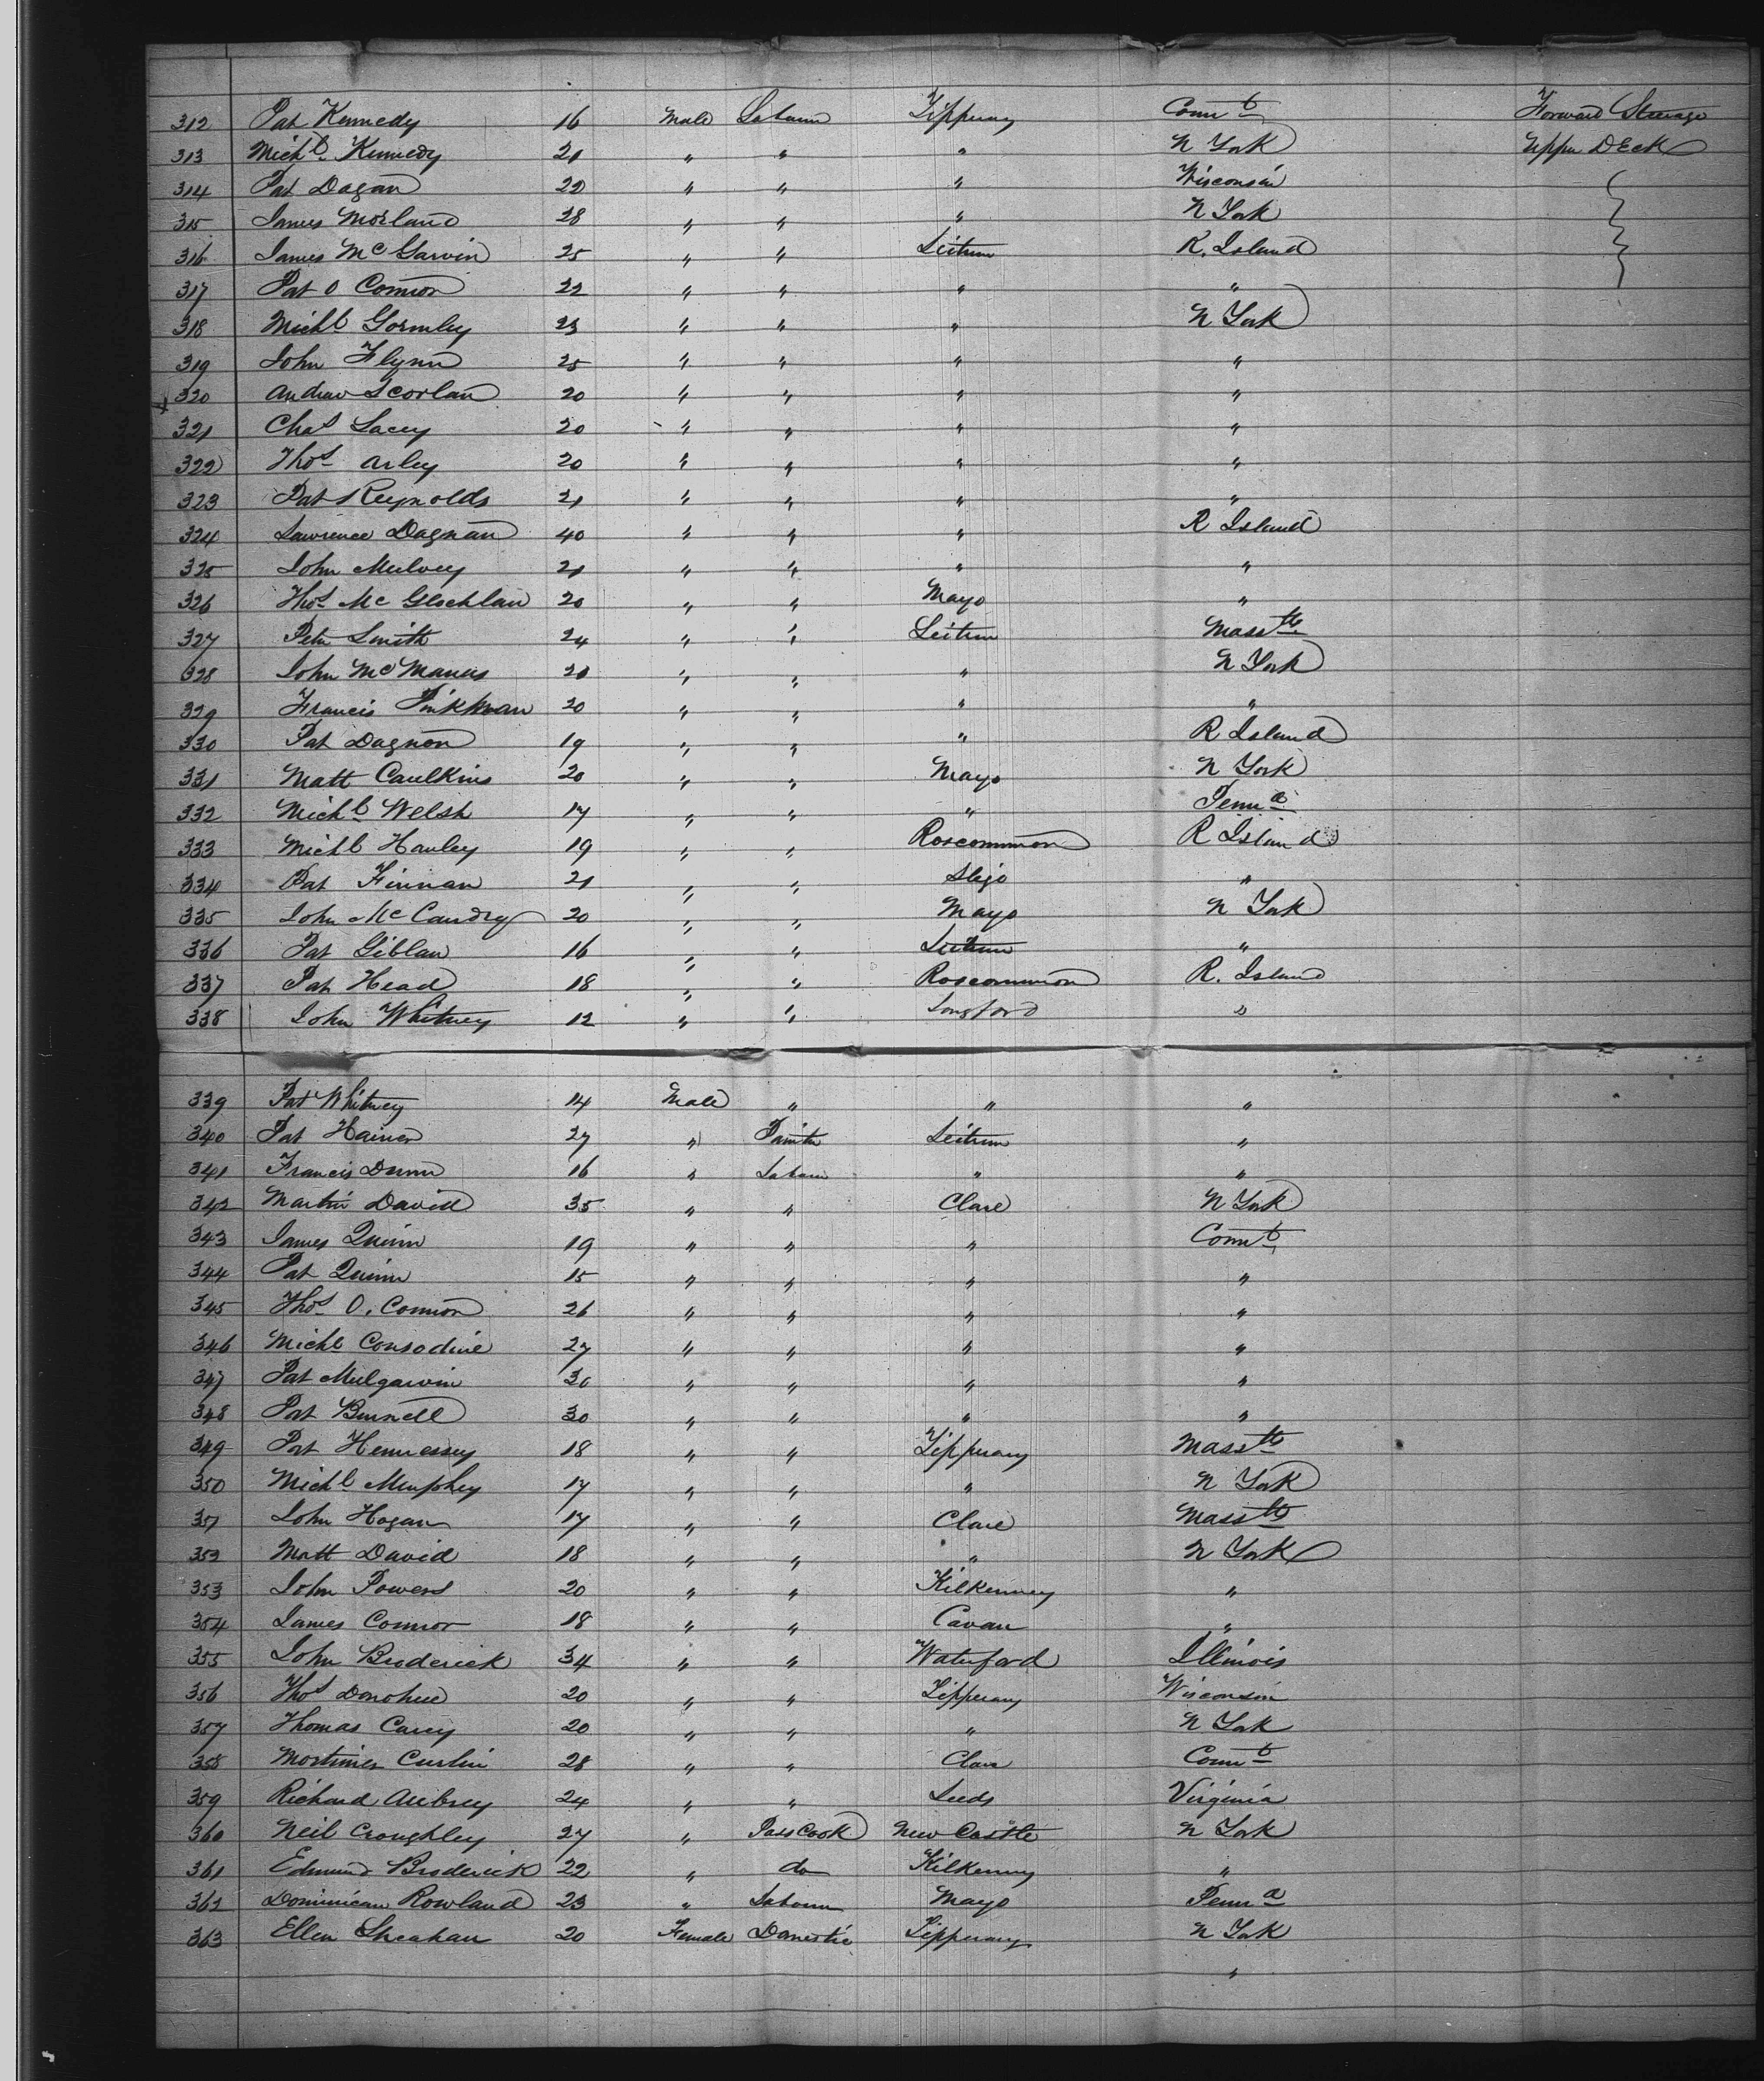 312 Pat Kennedy 16 Male Laborer Tipperary Connt Forward Steerage
313 Michl Kennedy 21 " " " N York Upper Deck
314 Pat Dagan 22 " " " Wisconsin
315 James Morland 28 " " " N York
316 James McGarvin 25 " " Leitrim R. Island
317 Pat O Connor 22 " " " "
318 Michl Gormley 23 " " " N York
319 John Flynn 25 " " " "
320 Andrew Scorlan 20 " " " "
321 Chas Lacey 20 " " " "
322 Thos Arley 20 " " " "
323 Pat Reynolds 21 " " " "
324 Lawrence Dagnan 40 " " " R Island
325 John Mulvey 21 " " " "
326 Thos Mc Glochlan 20 " " Mayo "
327 Peter Smith 24 " " Leitrim Masstts
328 John McManus 20 " " " N York
329 Francis Pinkman 20 " " " "
330 Pat Dagnon 19 " " " R Island
331 Matt Caulkins 20 " " Mayo N York
332 Michl Welsh 17 " " " Penna
333 Michl Hanley 19 " " Roscommon R Island
334 Pat Finnan 21 " " Sligo "
335 John Mc Candry 20 " " Mayo N York
336 Pat Giblan 16 " " Leitrim "
337 Pat Head 18 " " Roscommon R. Island
338 John Whitney 12 " " Longford "
339 Pat Whitney 14 Male " " "
340 Pat Hainer 27 " Painter Leitrim "
341 Francis Dunn 16 " Laborer " "
342 Martin David 35 " " Clare N York
343 James Quinn 19 " " " Connt
344 Pat Quinn 15 " " " "
345 Thos O. Connor 26 " " " "
346 Michl Consodine 27 " " " "
347 Pat Mulgarvin 30 " " " "
348 Pat Burnell 30 " " " "
349 Pat Hennessey 18 " " Tipperary Masstts
350 Michl Murphey 17 " " " N York
351 John Hogan 17 " " Clare Masstts
352 Matt David 18 " " " N York
353 John Powers 20 " " Kilkenney "
354 James Connor 18 " " Cavan "
355 John Broderick 34 " " Waterford Illinois
356 Thos Donohue 20 " " Tipperary Wisconsin
357 Thomas Carey 20 " " " N York
358 Mortimer Curlin 28 " " Clare Connt
359 Richard Aubrey 24 " " Leeds Virginia
360 Neil Croughley 27 " Pass Cook New Castle N York
361 Edmund Broderick 22 " do Kilkenny "
362 Dominican Rowland 23 " Laborer Mayo Penna
363 Ellen Sheahan 20 Female Domestic Tipperary N York
"